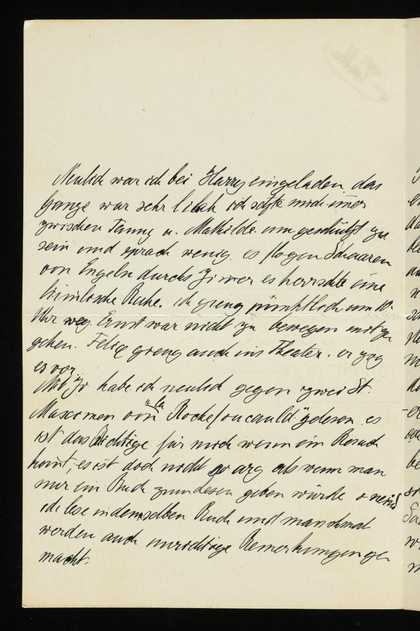 Neulich war ich bei Harry eingeladen das
Ganze war sehr lieb ich setzte mich immer
zwischen Fanny u. Mathilde um geschützt zu
sein und sprach wenig. es flogen Schaaren
von Engeln durchs Zimmer es herrschte eine
himmlische Ruhe. ich gieng pünktlich um 10
Uhr weg. Ernst war nicht zu bewegen mit zu
gehen. Felix gieng auch ins Theater. er zog
es vor.
Mit habe ich neulich gegen zwei St.
Maximen von la Rochefoucauld gelesen. es
ist das Richtige für mich wenn ein Besuch
kommt, es ist doch nicht so arg als wenn man
mir ein Buch zum lesen geben würde o nein
ich lese in demselben Buch und manchmal
werden auch unrichtige Bemerkungen ge
macht.